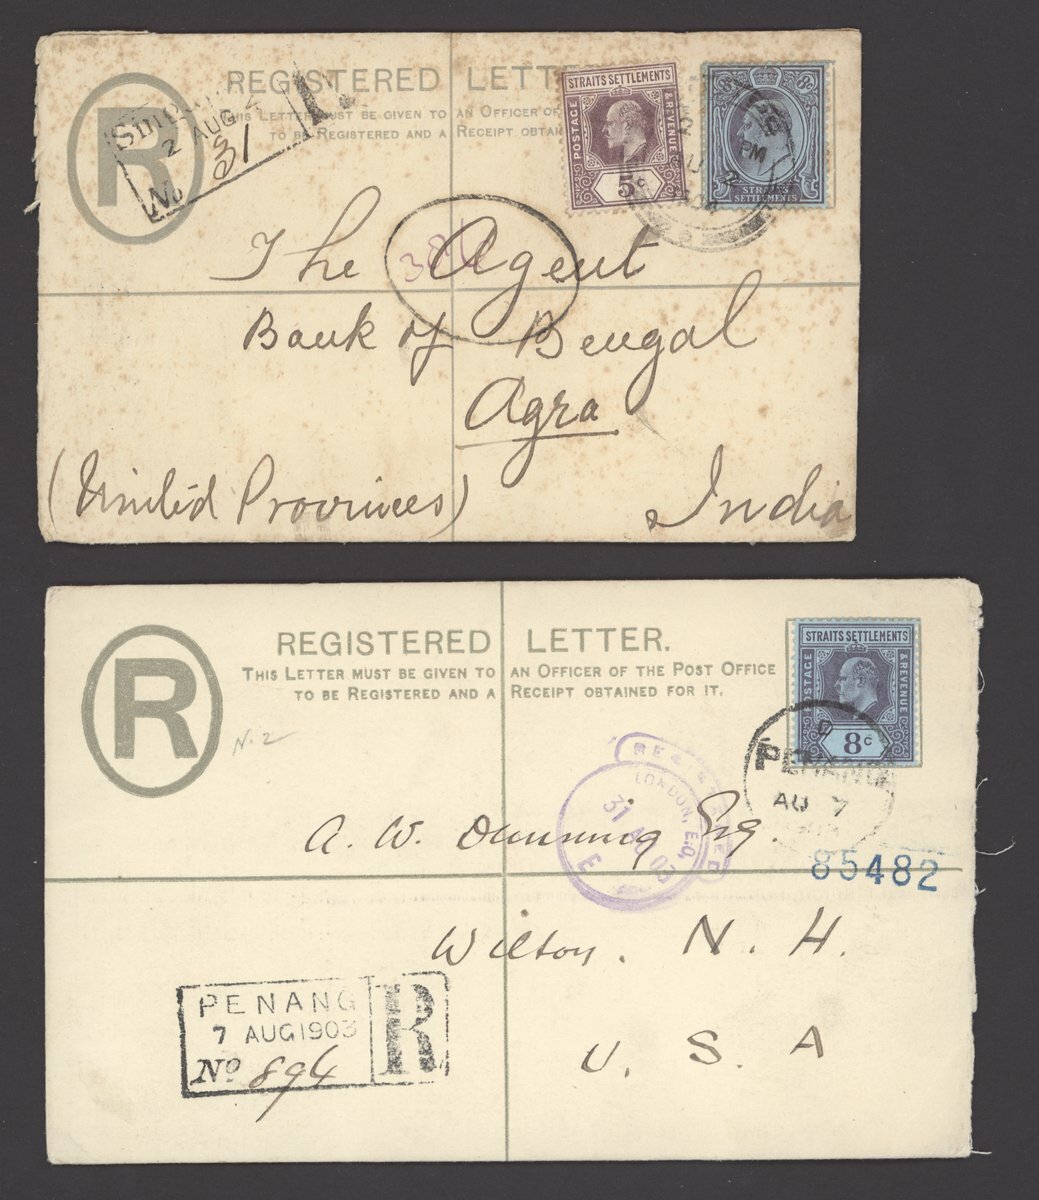 REGISTERED LETTER
THIS LETTER MUST BE GIVEN TO AN OFFICER OF
TO BE REGISTERED AND A RECEIPT OBTAIN
R
2 AUG
No 31
STRAITS SETTLEMENTS
POSTAGE & REVENUE
5c
8c 8c
STRAITS
SETTLEMENTS
PM
386
The Agent
Bank of Bengal
Agra
(United Provinces) India
REGISTERED LETTER.
THIS LETTER MUST BE GIVEN TO AN OFFICER OF THE POST OFFICE
TO BE REGISTERED AND A RECEIPT OBTAINED FOR IT.
R
N.2
STRAITS SETTLEMENTS
POSTAGE & REVENUE
8c
PENANG
AU 7
REGISTERED
LONDON, E.C.
31 AU 03
E
85482
A. W. Dunning Esq.
Wilton. N. H.
U. S. A
PENANG R
7 AUG 1903
No 894